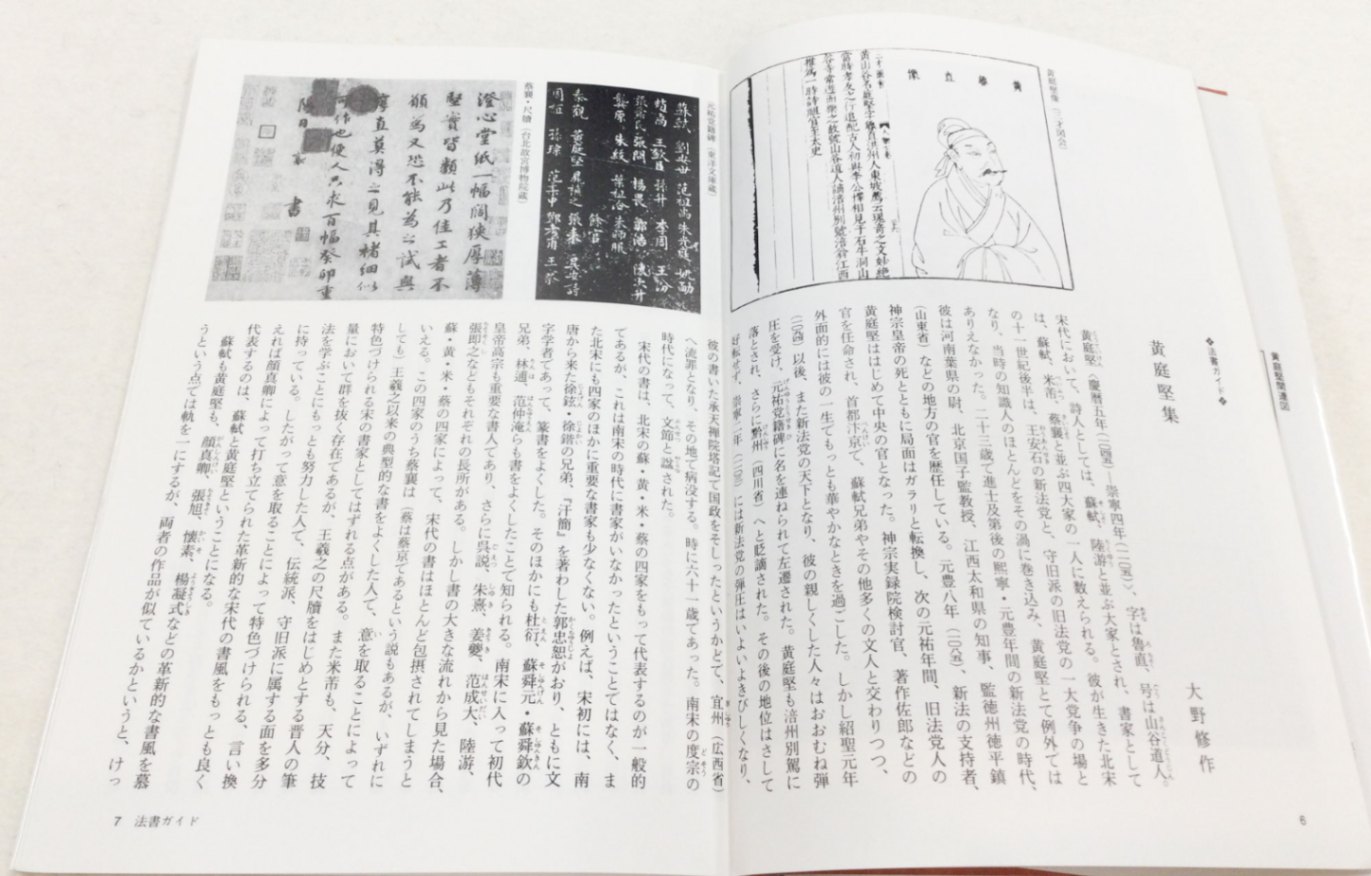 ❖法書ガイド❖
黄庭堅集
大野修作
黄庭堅(慶暦五年(一〇四五)―崇寧四年(一一〇五)、字は魯直、号は山谷道人。
宋代において、詩人としては、蘇軾、陸游と並ぶ大家とされ、書家として
は、蘇軾、米芾、蔡襄と並ぶ四大家の一人に数えられる。彼が生きた北宋
の十一世紀後半は、王安石の新法党と、守旧派の旧法党の一大党争の場と
なり、当時の知識人のほとんどをその渦に巻き込み、黄庭堅とて例外では
ありえなかった。二十三歳で進士及第後の熙寧・元豊年間の新法党の時代、
彼は河南葉県の尉、北京国子監教授、江西太和県の知事、監徳州徳平鎮
(山東省)などの地方の官を歴任している。元豊八年(一〇八五)、新法の支持者、
神宗皇帝の死とともに局面はガラリと転換し、次の元祐年間、旧法党人の
黄庭堅ははじめて中央の官となった。神宗実録院検討官、著作佐郎などの
官を任命され、首都汴京で、蘇軾兄弟やその他多くの文人と交わりつつ、
外面的には彼の一生でもっとも華やかなときを過ごした。しかし紹聖元年
(一〇九四)以後、また新法党の天下となり、彼の親しくした人々はおおむね弾
圧を受け、元祐党籍碑に名を連ねられて左遷された。黄庭堅も涪州別駕に
落とされ、さらに黔州(四川省)へと貶謫された。その後の地位はさして
好転せず、崇寧二年(一一〇三)には新法党の弾圧はいよいよきびしくなり、
黄庭堅像
黄庭堅関連図
6
彼の書いた承天禅院塔記で国政をそしったというかどで、宜州(広西省)
へ流罪となり、その地で病没する。時に六十一歳であった。南宋の度宗の
時代になって、文節と諡された。
宋代の書は、北宋の蘇・黄・米・蔡の四家をもって代表するのが一般的
であるが、これは南宋の時代に書家がいなかったということではなく、ま
た北宋にも四家のほかに重要な書家も少なくない。例えば、宋初には、南
唐から来た徐鉉・徐鍇の兄弟、『汗簡』を著わした郭忠恕がおり、ともに文
字学者であって、篆書をよくした。そのほかにも杜衍、蘇舜元・蘇舜欽の
兄弟、林逋、范仲淹らも書をよくしたことで知られる。南宋に入って初代
皇帝高宗も重要な書人であり、さらに呉説、朱熹、姜夔、范成大、陸游、
張即之などもそれぞれの長所がある。しかし書の大きな流れから見た場合、
蘇・黄・米・蔡の四家によって、宋代の書はほとんど包摂されてしまうと
いえる。この四家のうち蔡襄(蔡は蔡京であるという説もあるが、いずれに
しても)王羲之以来の典型的な書をよくした人で、意を取ることによって
特色づけられる宋の書家としてはずれる点がある。また米芾も、天分、技
量において群を抜く存在であるが、王羲之の尺牘をはじめとする晋人の筆
法を学ぶことにもっとも努力した人で、伝統派、守旧派に属する面を多分
に持っている。したがって意を取ることによって特色づけられる、言い換
えれば顔真卿によって打ち立てられた革新的な宋代の書風をもっとも良く
代表するのは、蘇軾と黄庭堅ということになる。
蘇軾も黄庭堅も、顔真卿、張旭、懐素、楊凝式などの革新的な書風を慕
うという点では軌を一にするが、両者の作品が似ているかというと、けっ
元祐党籍碑(東洋文庫蔵)
蔡襄・尺牘(台北故宮博物院蔵)
澄心堂紙一幅闊狭厚薄
堅實皆類此乃佳工者不
願為又恐不能為之試與
厚直莫得之見其楮細似
可作也便人只求百幅癸卯重
陽日襄書
7 法書ガイド